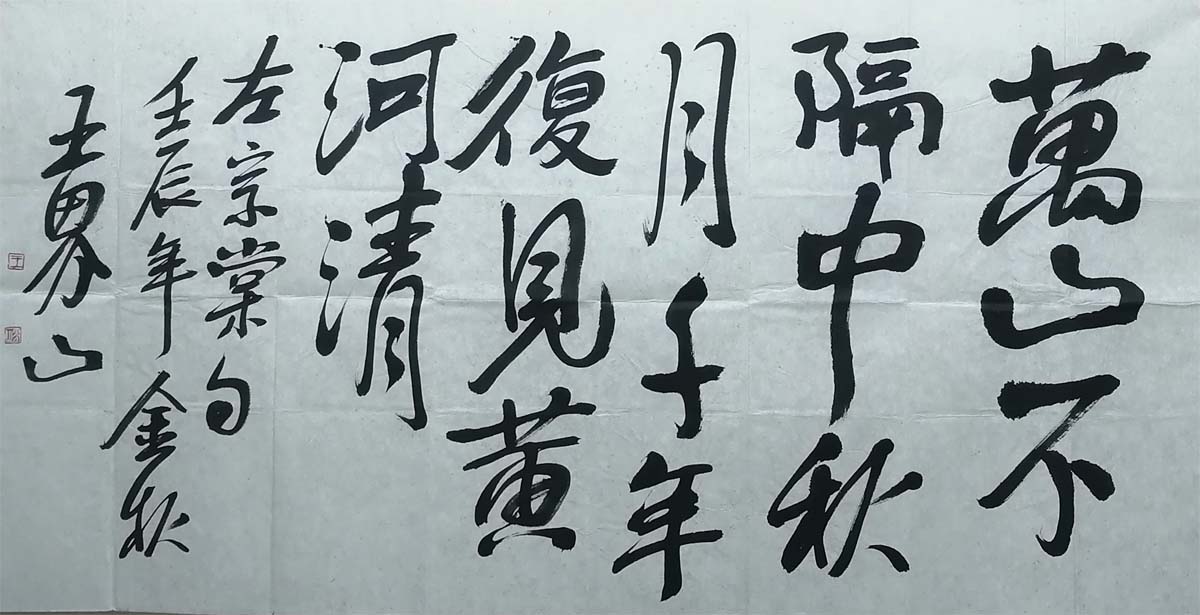 萬山不
隔中秋
月千年
復見黄
河清
左宗棠句
壬辰年金秋
王界山